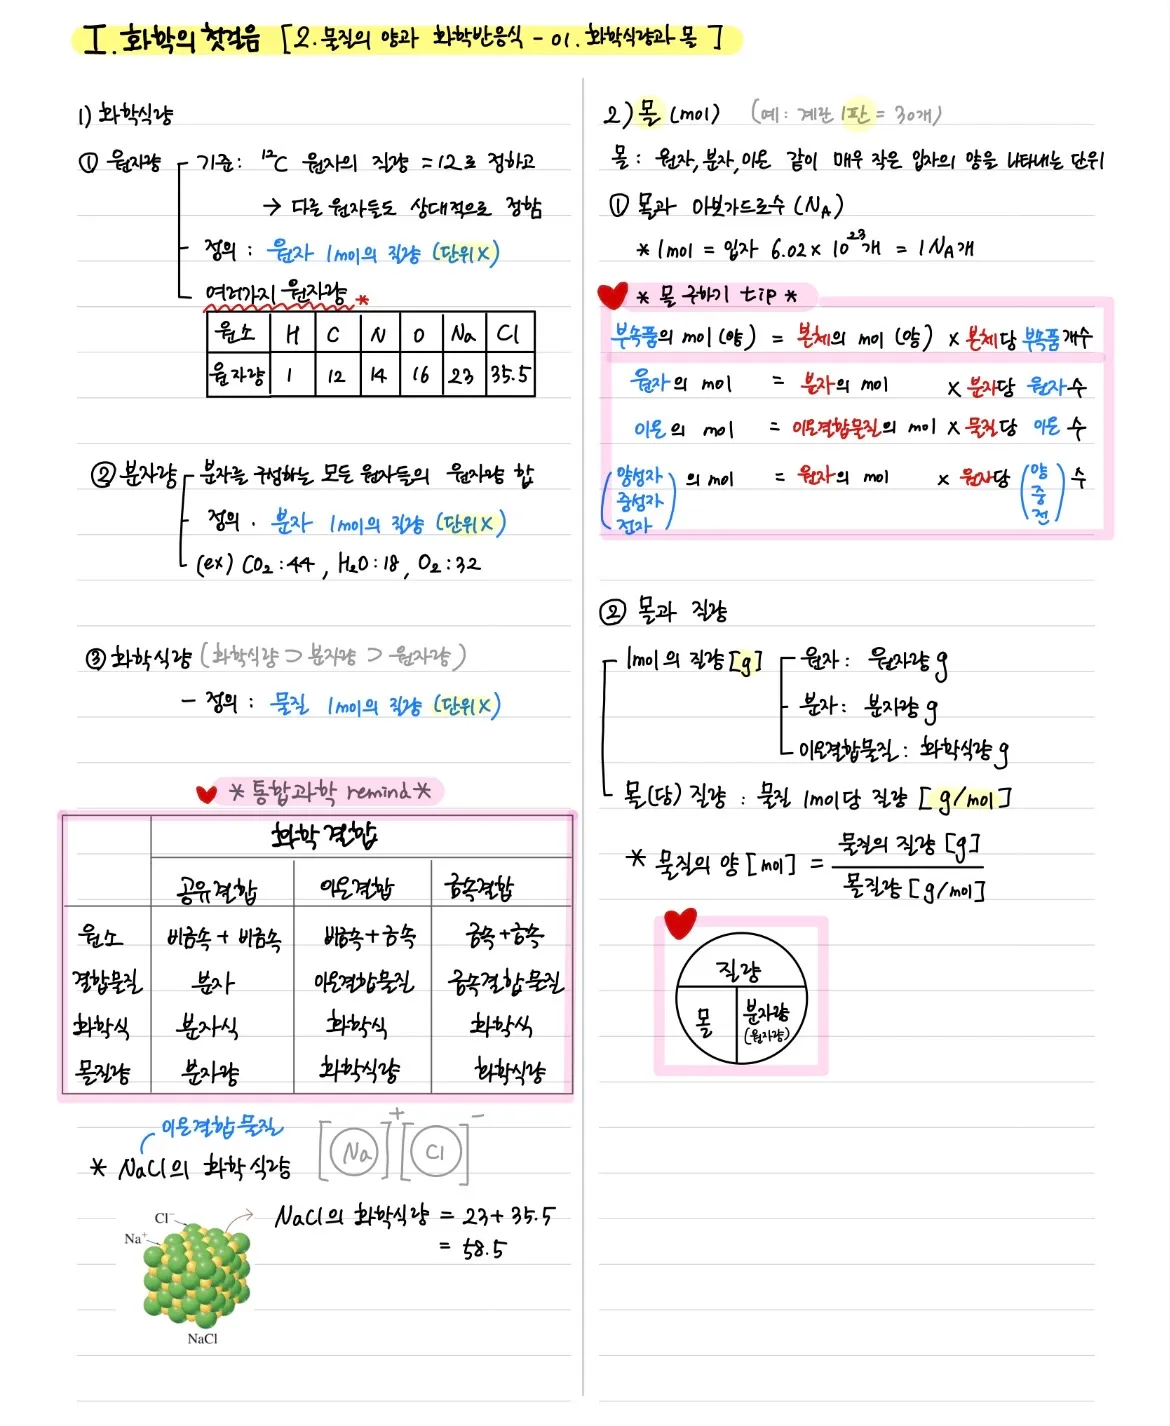 I. 화학의 첫걸음 [2. 물질의 양과 화학반응식 - 01. 화학식량과 몰 ]
1) 화학식량
① 원자량
기준: ¹²C 원자의 질량 = 12로 정하고
→ 다른 원자들도 상대적으로 정함
정의 : 원자 1mol의 질량 (단위X)
여러가지 원자량 *
원소 H C N O Na Cl
원자량 1 12 14 16 23 35.5
② 분자량
분자를 구성하는 모든 원자들의 원자량 합
정의 . 분자 1mol의 질량 (단위X)
(ex) CO₂:44 , H₂O:18, O₂:32
③ 화학식량 (화학식량 ⊃ 분자량 ⊃ 원자량)
- 정의 : 물질 1mol의 질량 (단위X)
* 통합과학 remind *
화학 결합
공유결합 이온결합 금속결합
원소 비금속 + 비금속 비금속+금속 금속+금속
결합물질 분자 이온결합물질 금속결합물질
화학식 분자식 화학식 화학식
몰질량 분자량 화학식량 화학식량
이온결합물질
* NaCl의 화학식량 [Na]⁺[Cl]⁻
NaCl의 화학식량 = 23+35.5
= 58.5
Cl⁻
Na⁺
NaCl
2) 몰 (mol) (예: 계란 1판 = 30개)
몰 : 원자, 분자, 이온 같이 매우 작은 입자의 양을 나타내는 단위
① 몰과 아보가드로수 (N_A)
* 1mol = 입자 6.02×10²³개 = 1N_A개
* 몰 구하기 tip *
부속품의 mol(양) = 본체의 mol (양) × 본체당 부속품 개수
원자의 mol = 분자의 mol × 분자당 원자 수
이온의 mol = 이온결합물질의 mol × 물질당 이온 수
(양성자 중성자 전자)의 mol = 원자의 mol × 원자당 (양 중 전) 수
② 몰과 질량
1mol의 질량 [g]
원자 : 원자량 g
분자 : 분자량 g
이온결합물질 : 화학식량 g
몰(당) 질량 : 물질 1mol당 질량 [g/mol]
* 물질의 양 [mol] = 물질의 질량 [g]
몰질량 [g/mol]
질량
몰 분자량
(원자량)